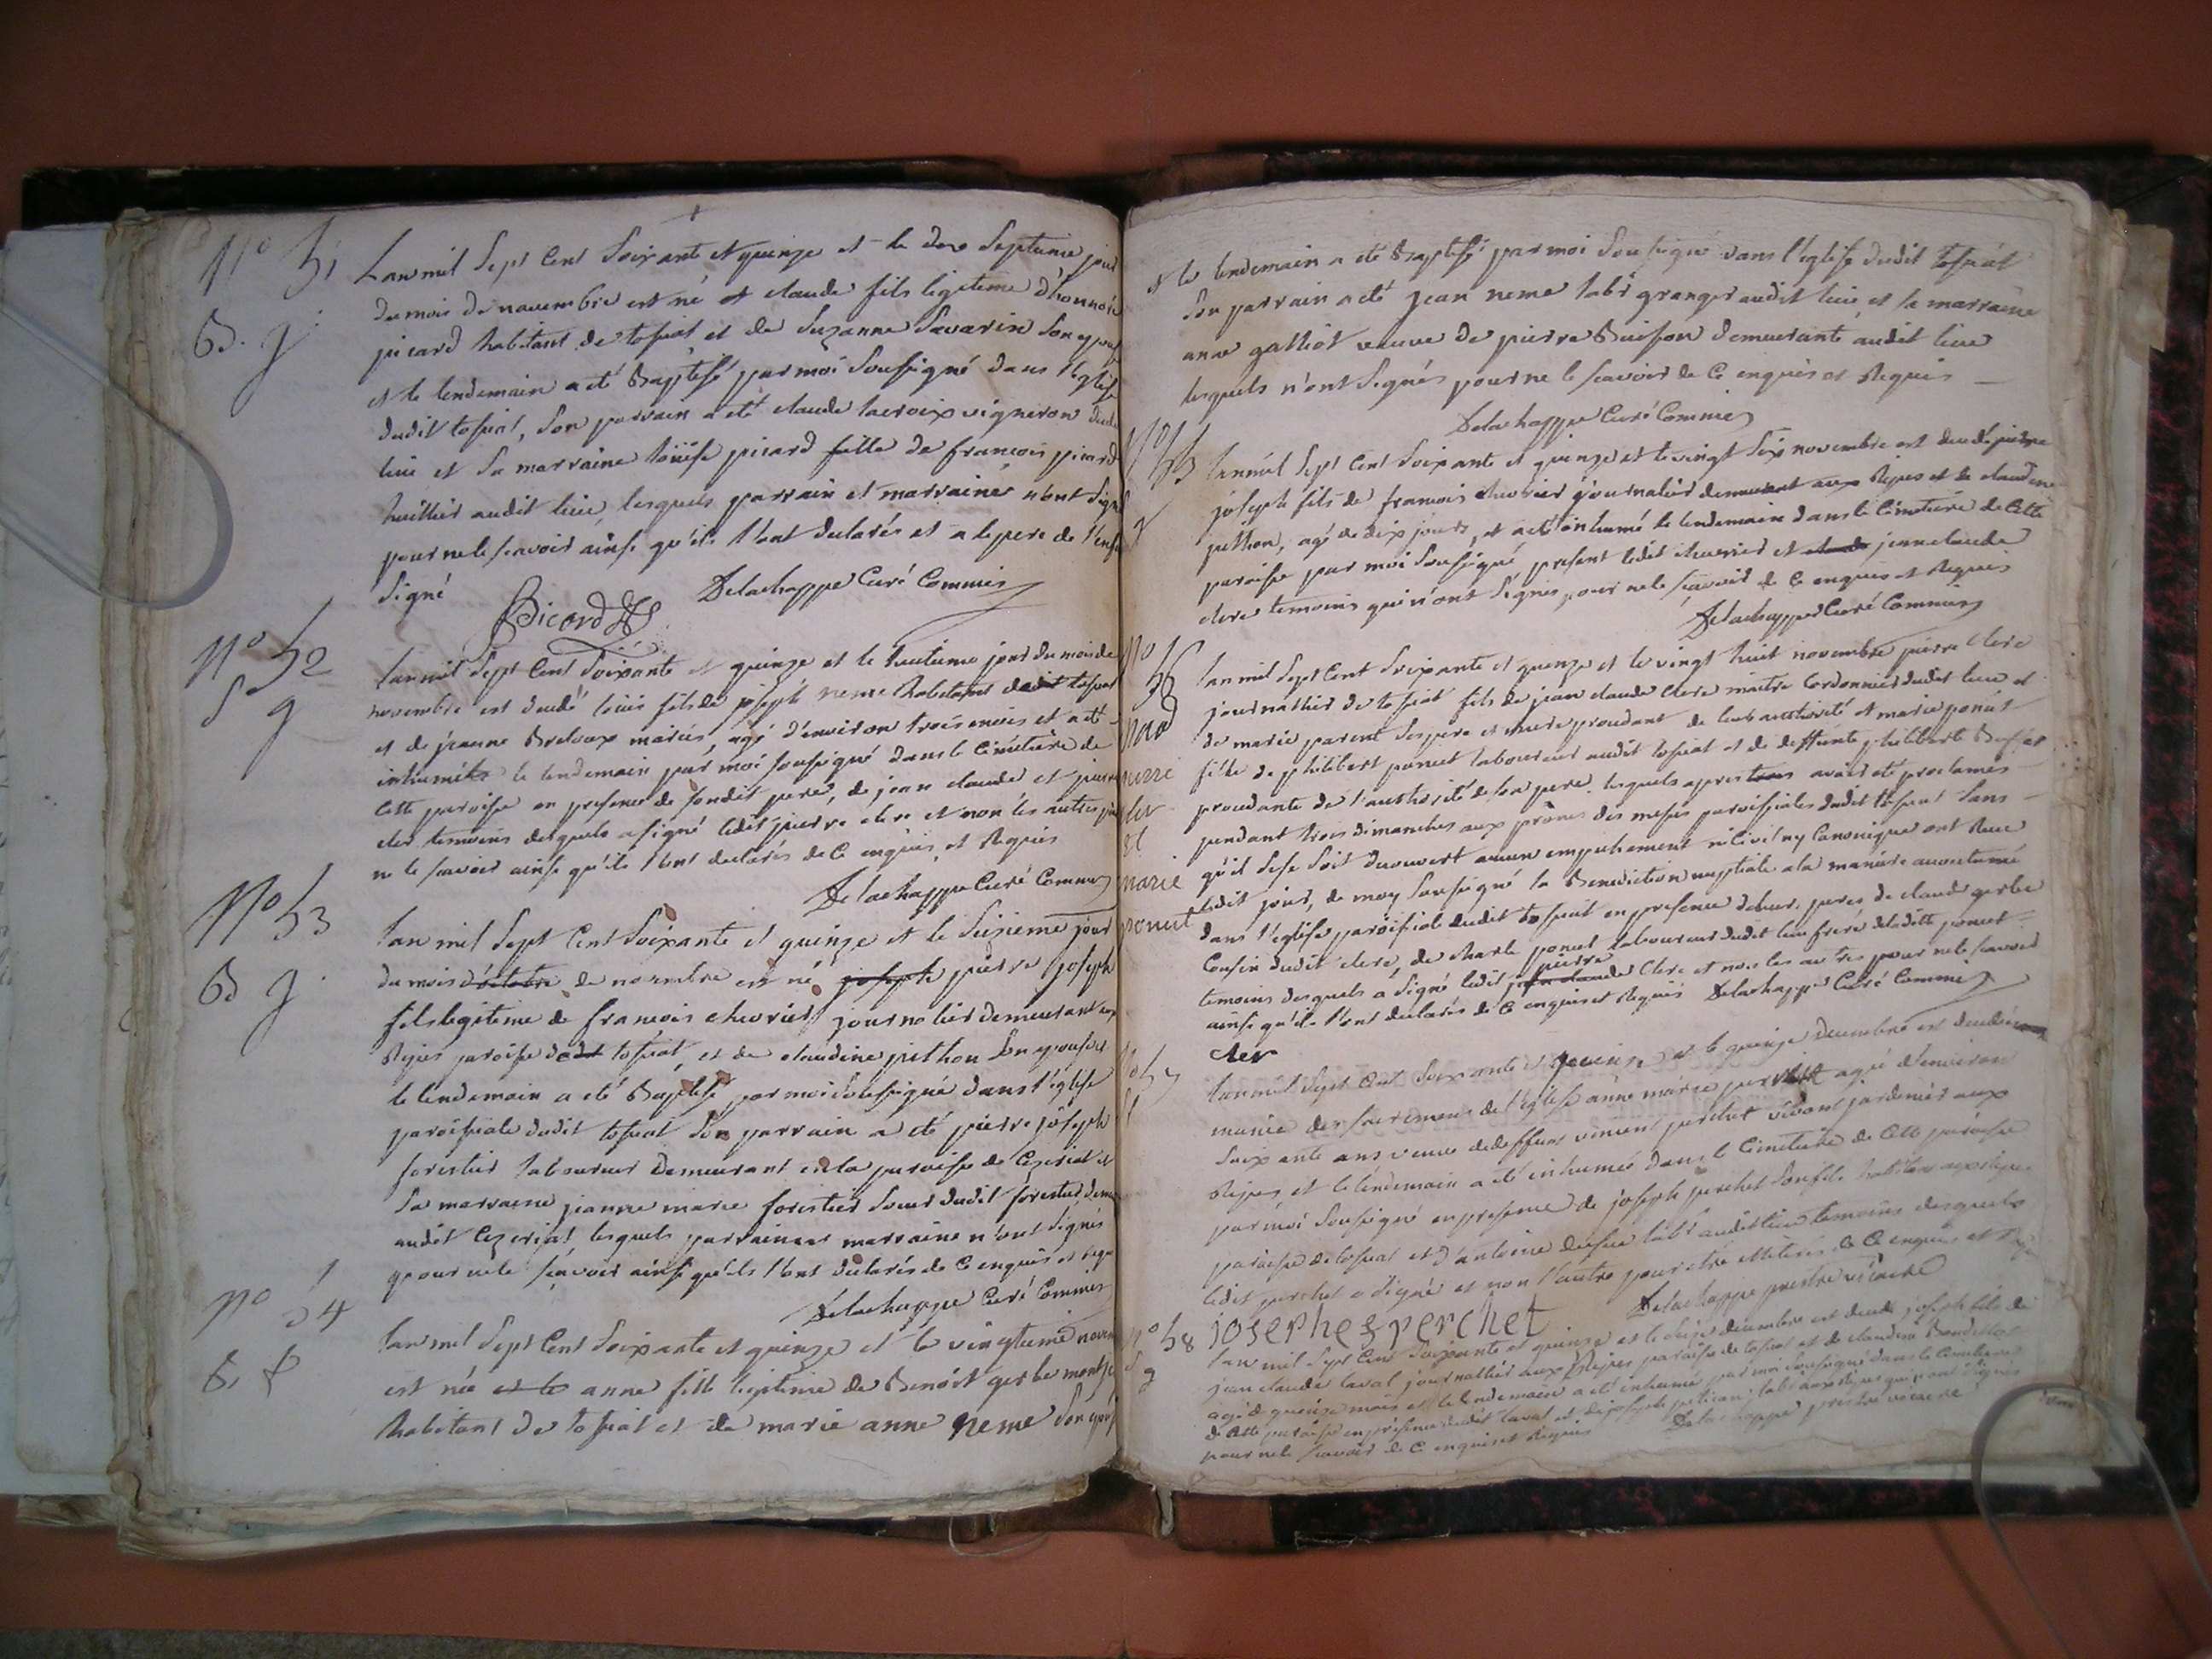 N° 51
B. g
L'an mil sept cent soixante et quinze et le dix septieme jour
du mois de novembre est né et claude fils ligitime d'honnoré
picard habitant de tossiat et de suzanne savarin son epouse
et le lendemain a eté Baptisé par moi soussigné dans l'eglise
dudit tossiat, son parrain a eté claude lacroix vigneron dudit
lieu et sa marraine loüise picard fille de francois picard
huillier audit lieu, lesquels parrain et marraine n'ont signé
pour ne le scavoir ainsi qu'ils l'ont declarés et a le pere de l'enfant
signé
Picard Delachappe Curé Commis
N° 52
S g
l'an mil sept cent soixante et quinze et le huitieme jour du mois de
novembre est decedé loüis fils de joseph neme habitant dudit tossiat
et de jeanne Breloux mariés, agé d'environ trois mois et a eté
inhumé le lendemain par moi soussigné dans le Cimetiere de
cette paroisse en presence de sondit pere, de jean claude et pierre
clerc temoins desquels a signé ledit pierre clere et non les autres pour
ne le scavoir ainsi qu'ils l'ont declarés de ce enquis et Requis
Delachappe Curé Commis
N° 53
B g
l'an mil sept cent soixante et quinze et le sixieme jour
du mois d'octobre de novembre est né joseph pierre joseph
fils legitime de francois chevrier journalier demeurant aux
Rippes paroisse dudit tossiat, et de claudine pithon son epouse et
le lendemain a eté Baptisé par moi soussigné dans l'église
paroissiale dudit tossiat son parrain a eté pierre joseph
forestier laboureur demeurant en la paroisse de Ceyzeriat et
sa marraine jeanne marie forestier soeur dudit forestier dem
audit Ceyzeriat lesquels parrain et marraine n'ont signés
pour ne le scavoir ainsi qu'ils l'ont declarés de ce enquis et requis
Delachappe Curé Commis
N° 54
B. f
l'an mil sept cent soixante et quinze et le vingtieme novem
est née et le anne fille legitime de Benoit gerbe
habitant de tossiat et de marie anne neme son epouse
et le lendemain a eté Baptisé par moi soussigné dans l'eglise dudit tossiat
son parrain a eté jean neme labr granger audit lieu, et la marraine
anne galliot veuve de pierre Buisson demeurante audit lieu
lesquels n'ont signés pour ne le scavoir de ce enquis et Requis
Delachappe Curé Commis
N° 55
g
l'an mil sept cent soixante et quinze et le vingt six novembre est decedé pierre
joseph fils de francois chevrier journalier demeurant aux Rippes et de claudine
pithon, agé de dix jours, et a eté inhumé le lendemain dans le Cimetiere de cette
paroisse par moi soussigné present ledit chevrier et claude jean claude
clere temoins qui n'ont signés pour ne le scavoir de ce enquis et Requis
Delachappe Curé Commis
N° 56
pierre
cler
et
marie
ponut
l'an mil sept cent soixante et quinze et le vingt huit novembre pierre Clere
journallier de tossiat fils de jean claude Clere maitre Cordonnier dudit lieu et
de marie parent ses pere et mere procedant de leur authorité et marie ponut
fille de philibert ponut laboureur audit tossiat et de deffunte philiberte
procedante de l'authorité de son pere. lesquels apres avoir eté proclamés
pendant trois dimanches aux prônes des messes paroissiales dudit tossiat sans
qu'il se se soit decouvert aucun empechement ni Civil ny Canonique ont Recu
ledit jour, de moy soussigné la Benediction nuptiale a la maniere accoutumé
dans l'eglise paroissiale dudit tossiat en presence de leurs peres, de claude gerbe
Cousin dudit clere, de charle ponut laboureur dudit lieu frere de ladite ponut
temoins desquels a signé ledit jean claude pierre Clere et non les autres pour ne le scavoir
ainsi qu'ils l'ont declarés de ce enquis et Requis Delachappe Curé Commis
cler
N° 57
f
l'an mil sept cent soixante et quinze et le quinze decembre est decedée
munie des sacremens de l'eglise anne marie agée d'environ
soixante ans veuve de deffunt vincent perchet vivant jardinier aux
Rippes et le lendemain a eté inhumée dans le Cimetiere de cette paroisse
par moi soussigné en presence de joseph perchet son fils habitant aux Rippes
paroisse de tossiat et d'antoine labr audit lieu temoins desquels
ledit perchet a signé et non l'autre pour etre illiteré de ce enquis et Requis
Delachappe prestre vicaire
josephe perchet
N° 58
S
g
l'an mil sept cent soixante et quinze et le decembre est decedé joseph fils de
jean claude laval journallier aux Rippes paroisse de tossiat et de claudine
agé de quinze mois et le lendemain a eté inhumé par moi soussigné dans le Cimetiere
de cette paroisse en presence dudit laval et de joseph labr aux Rippes qui n'ont signés
pour ne le scavoir de ce enquis et Requis Delachappe prestre vicaire